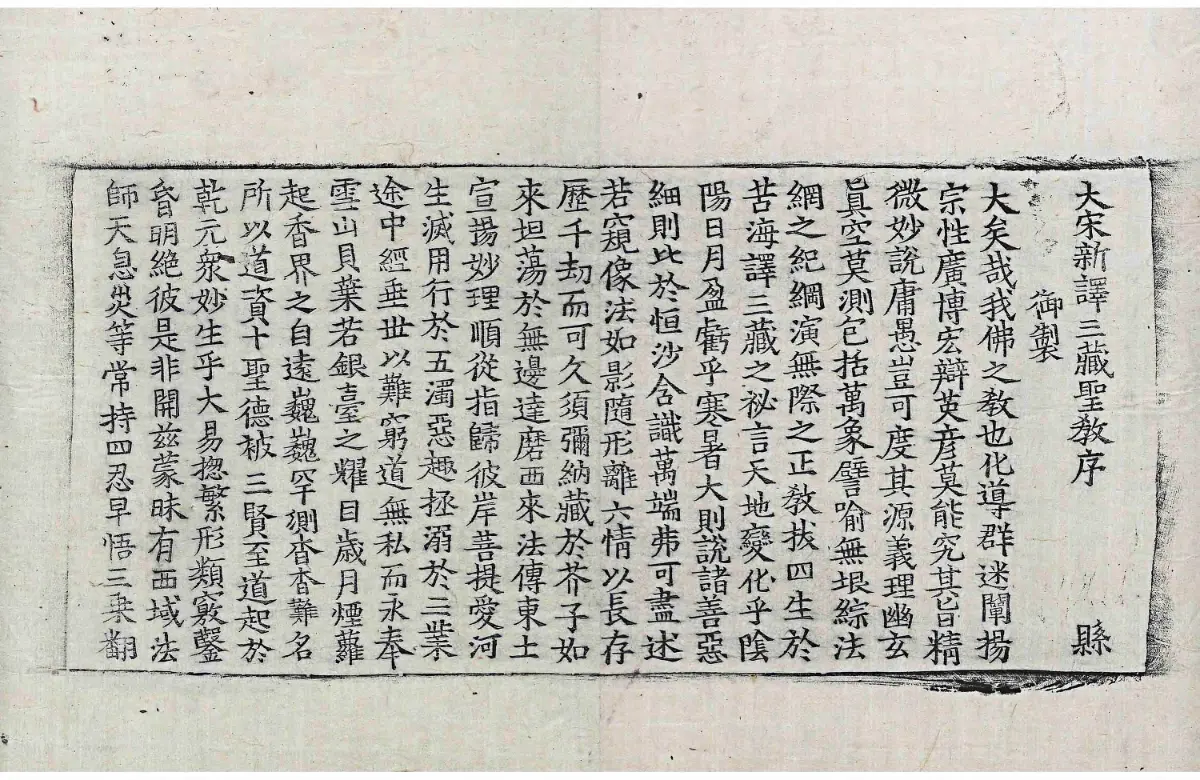 大宋新譯三藏聖敎序 縣
御製
大矣哉我佛之敎也化導群迷闡揚
宗性廣博宏辯英彦莫能究其旨精
微妙說庸愚豈可度其源義理幽玄
眞空莫測包括萬象譬喻無垠綜法
網之紀綱演無際之正敎拔四生於
苦海譯三藏之祕言天地變化乎陰
陽日月盈虧乎寒暑大則說諸善惡
細則比於恒沙含識萬端弗可盡述
若窺像法如影隨形離六情以長存
歷千劫而可久須彌納藏於芥子如
來坦蕩於無邊達磨西來法傳東土
宣揚妙理順從指歸彼岸菩提愛河
生滅用行於五濁惡趣拯溺於三業
途中經垂世以難窮道無私而永奉
雪山貝葉若銀臺之耀目歲月煙蘿
起香界之自遠巍巍罕測杳杳難名
所以道資十聖德被三賢至道起於
乾元衆妙生乎大易揔繁形類竅鑿
昏明絶彼是非開兹蒙昧有西域法
師天息災等常持四忍早悟三乘翻